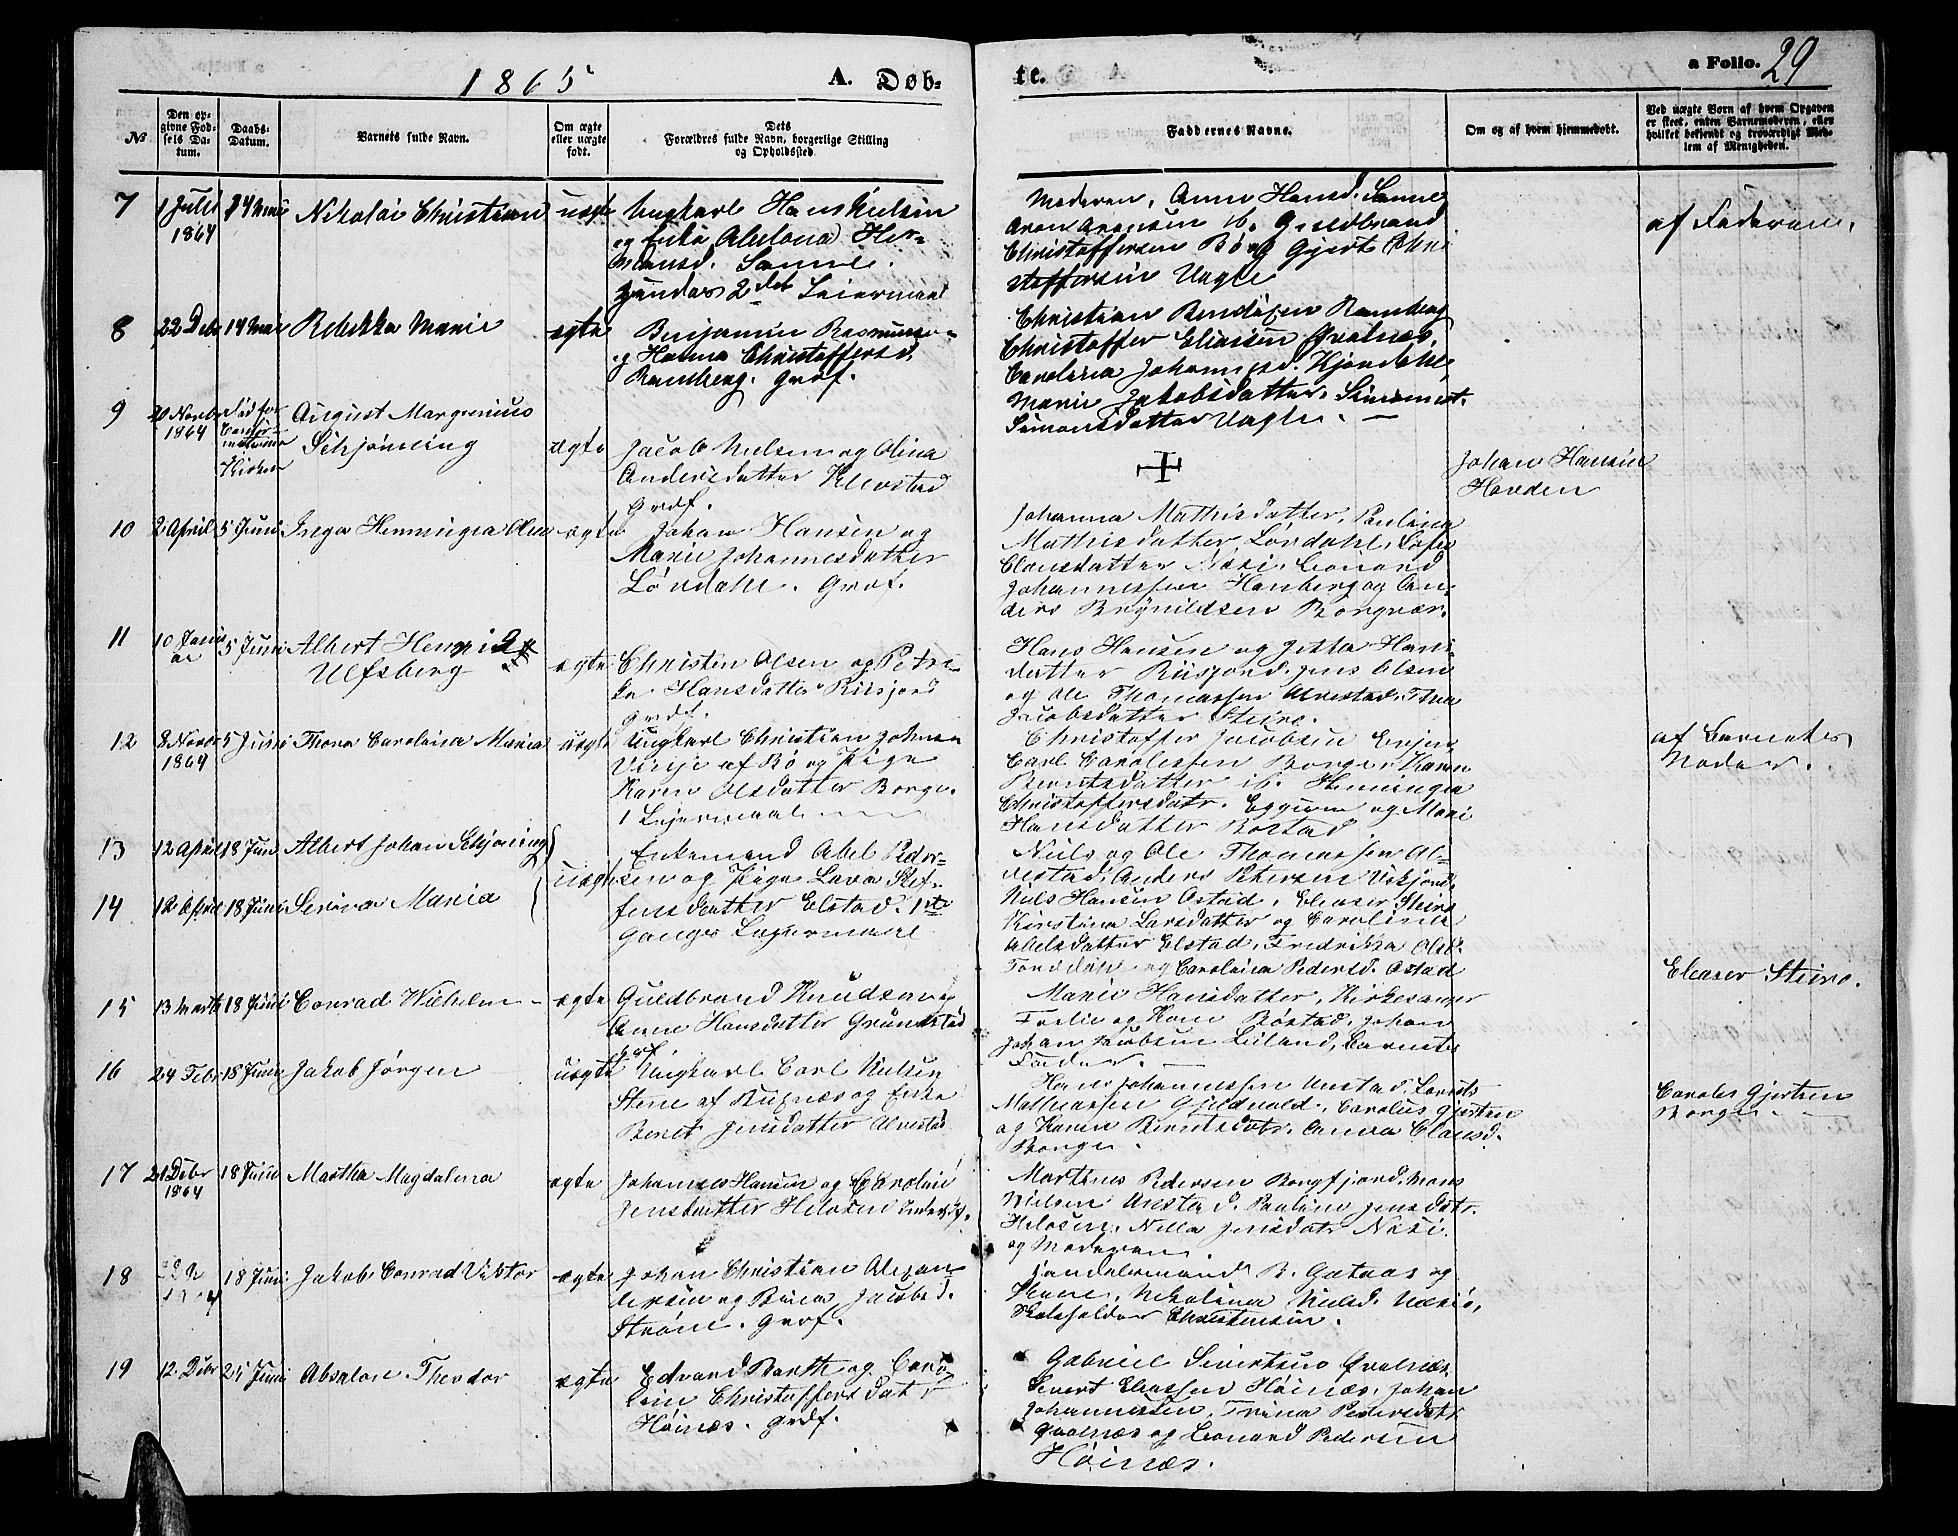 1865
A. Døb-
te.
a Folio. 29
No
Den op-
givne Fød-
sels Da-
tum.
Daabs-
Datum.
Barnets fulde Navn.
Om ægte
eller uægte
født.
Dets
Forældres fulde Navn, borgerlige Stilling
og Opholdssted.
Faddernes Navne.
Om og af hvem hjemmedøbt.
Ved uægte Børn af hvem Opgaven
er skeet, enten Barnemoderen, eller
hvilket bekjendt og troværdigt Med-
lem af Menigheden.
7
1 Juli
1864
14 Mai
Nikolai Christian
uægte
Ungkarl Hans Nielsen
og Enke Abelona Her-
mansd. Sanne.
hendes 2det Leiermaal
Moderen, Anne Hansd. Sanne
Aron Aronsen ib. Guldbrand
Christoffersen Børg Gjert Chri
stoffersen Vagle
af Faderen.
8
22 Debr
14 Mai
Rebekka Marie
ægte
Benjamin Rasmussen
og Hanna Christoffersd.
Ramberg. Grdf.
Christian Bendixen Ramberg
Christoffer Eliasen Øvalnæs,
Carolina Johannesd. Kjøndahl,
Marie Jakobsdatter, Simimest.
Simonsdatter Vagle. —
9
20 Novbr
1864
Død før
Kirken
August Margenius
Schjønning
ægte
Jacob Nielsen og Olina
Andersdatter Klevstad
Grdf.
Johan Hansen
Hovden
10
2 April
5 Juni
Inga Henningia Olea
ægte
Johan Hansen og
Marie Johannesdatter
Løvdahl. Grdf.
Johanna Mathisdatter, Paulina
Mathisdatter Løvdahl, Sofie
Clausdatter Næsi. Leonard
Johannessen Hanberg og An-
ders Brynildsen Borgvær.
11
10 Janu
ar
5 Juni
Albert Henrik
Ulfsberg
ægte
Christen Olsen og Petri-
ka Hansdatter Riisjord
Grdf.
Hans Hansen og Jetta Hans-
datter Riisjord. Jens Olsen
og Ole Thomassen Alvestad. Trina
Jacobsdatter Steiro.
12
8 Novbr
1864
5 Juni
Thora Carolina Maria
uægte
Ungkarl Christian Johnsen
Vieje af Bø og Pige
Karen Olsdatter Borge.
1 Lejermaal
Christoffer Jacobsen
Carl Carolissen Borge, Karen
Berntsdatter ib. Henningia
Christoffersdatr. Eggum og Mari
Hansdatter Bostad
af Barnets
Moder.
13
12 April
18 Juni
Albert Johan Schjøning
uægte
Enkemand Abel Peder-
sen og Pige Lava Stef-
fensdatter Elstad. 1ste
Gangs Lejermaal
Niels og Ole Thomassen Al-
vestad, Anders Petersen Uskjord
Nils Hansen Østad, Eleaser Steiro
Kirstina Larsdatter og Caroline
Abelsdatter Elstad, Fredrikka Olsd.
og Carolina Pedersd. Østad
Eleaser Steiro.
14
12 April
18 Juni
Serina Maria
15
13 Marts
18 Juni
Conrad Wilhelm
ægte
Guldbrand Knudsen og
Anne Hansdatter Grundstad
Grdf.
Marie Hansdatter, Kirkesanger
og Kone Bøstad. Johan
Johan Jacobsen Liland, Barnets
Fader.
16
24 Febr
18 Juni
Jakob Jørgen
uægte
Ungkarl Carl Nielsen
Stene af Buxnæs og Enke
Beret Jensdatter Alvestad
Hans Johannessen Unstad, Lorents
Mathiassen Gjeldvald, Carolus Gjertsen
og Karen Berntsdatr. Canna Clausd.
Borge.
Carolus Gjertsen
Borge.
17
21 Debr
1864
18 Juni
Martha Magdalena
ægte
Johannes Hansen og Carolin
Jensdatter Helosen
Martinus Pedersen Borgfjord, Mons
Nielsen Unstad. Pauline Jensdatr.
Helosen. Nella Jensdatr Næsi.
og Moderen.
18
18 Juni
Jakob Conrad Viktor
ægte
Johan Christian Alexan-
dersen og Beret Jacobsd.
Strøne. Grdf.
Handelsmand B. Gataas og
Kone, Nikolina Nielsd. Uersiø,
Skoleholder Christensen.
19
12 Debr
25 Juni
Absalon Theodor
ægte
Edvard Barth og Caro-
line Christoffersdatr
Høinæs. Grdf.
Gabriel Sivertsen Øvalnæs,
Sivert Eliassen Høinæs, Johan
Johannessen, Trina Pedersdatr
Qvalnæs og Leonard Pedersen
Høinæs.